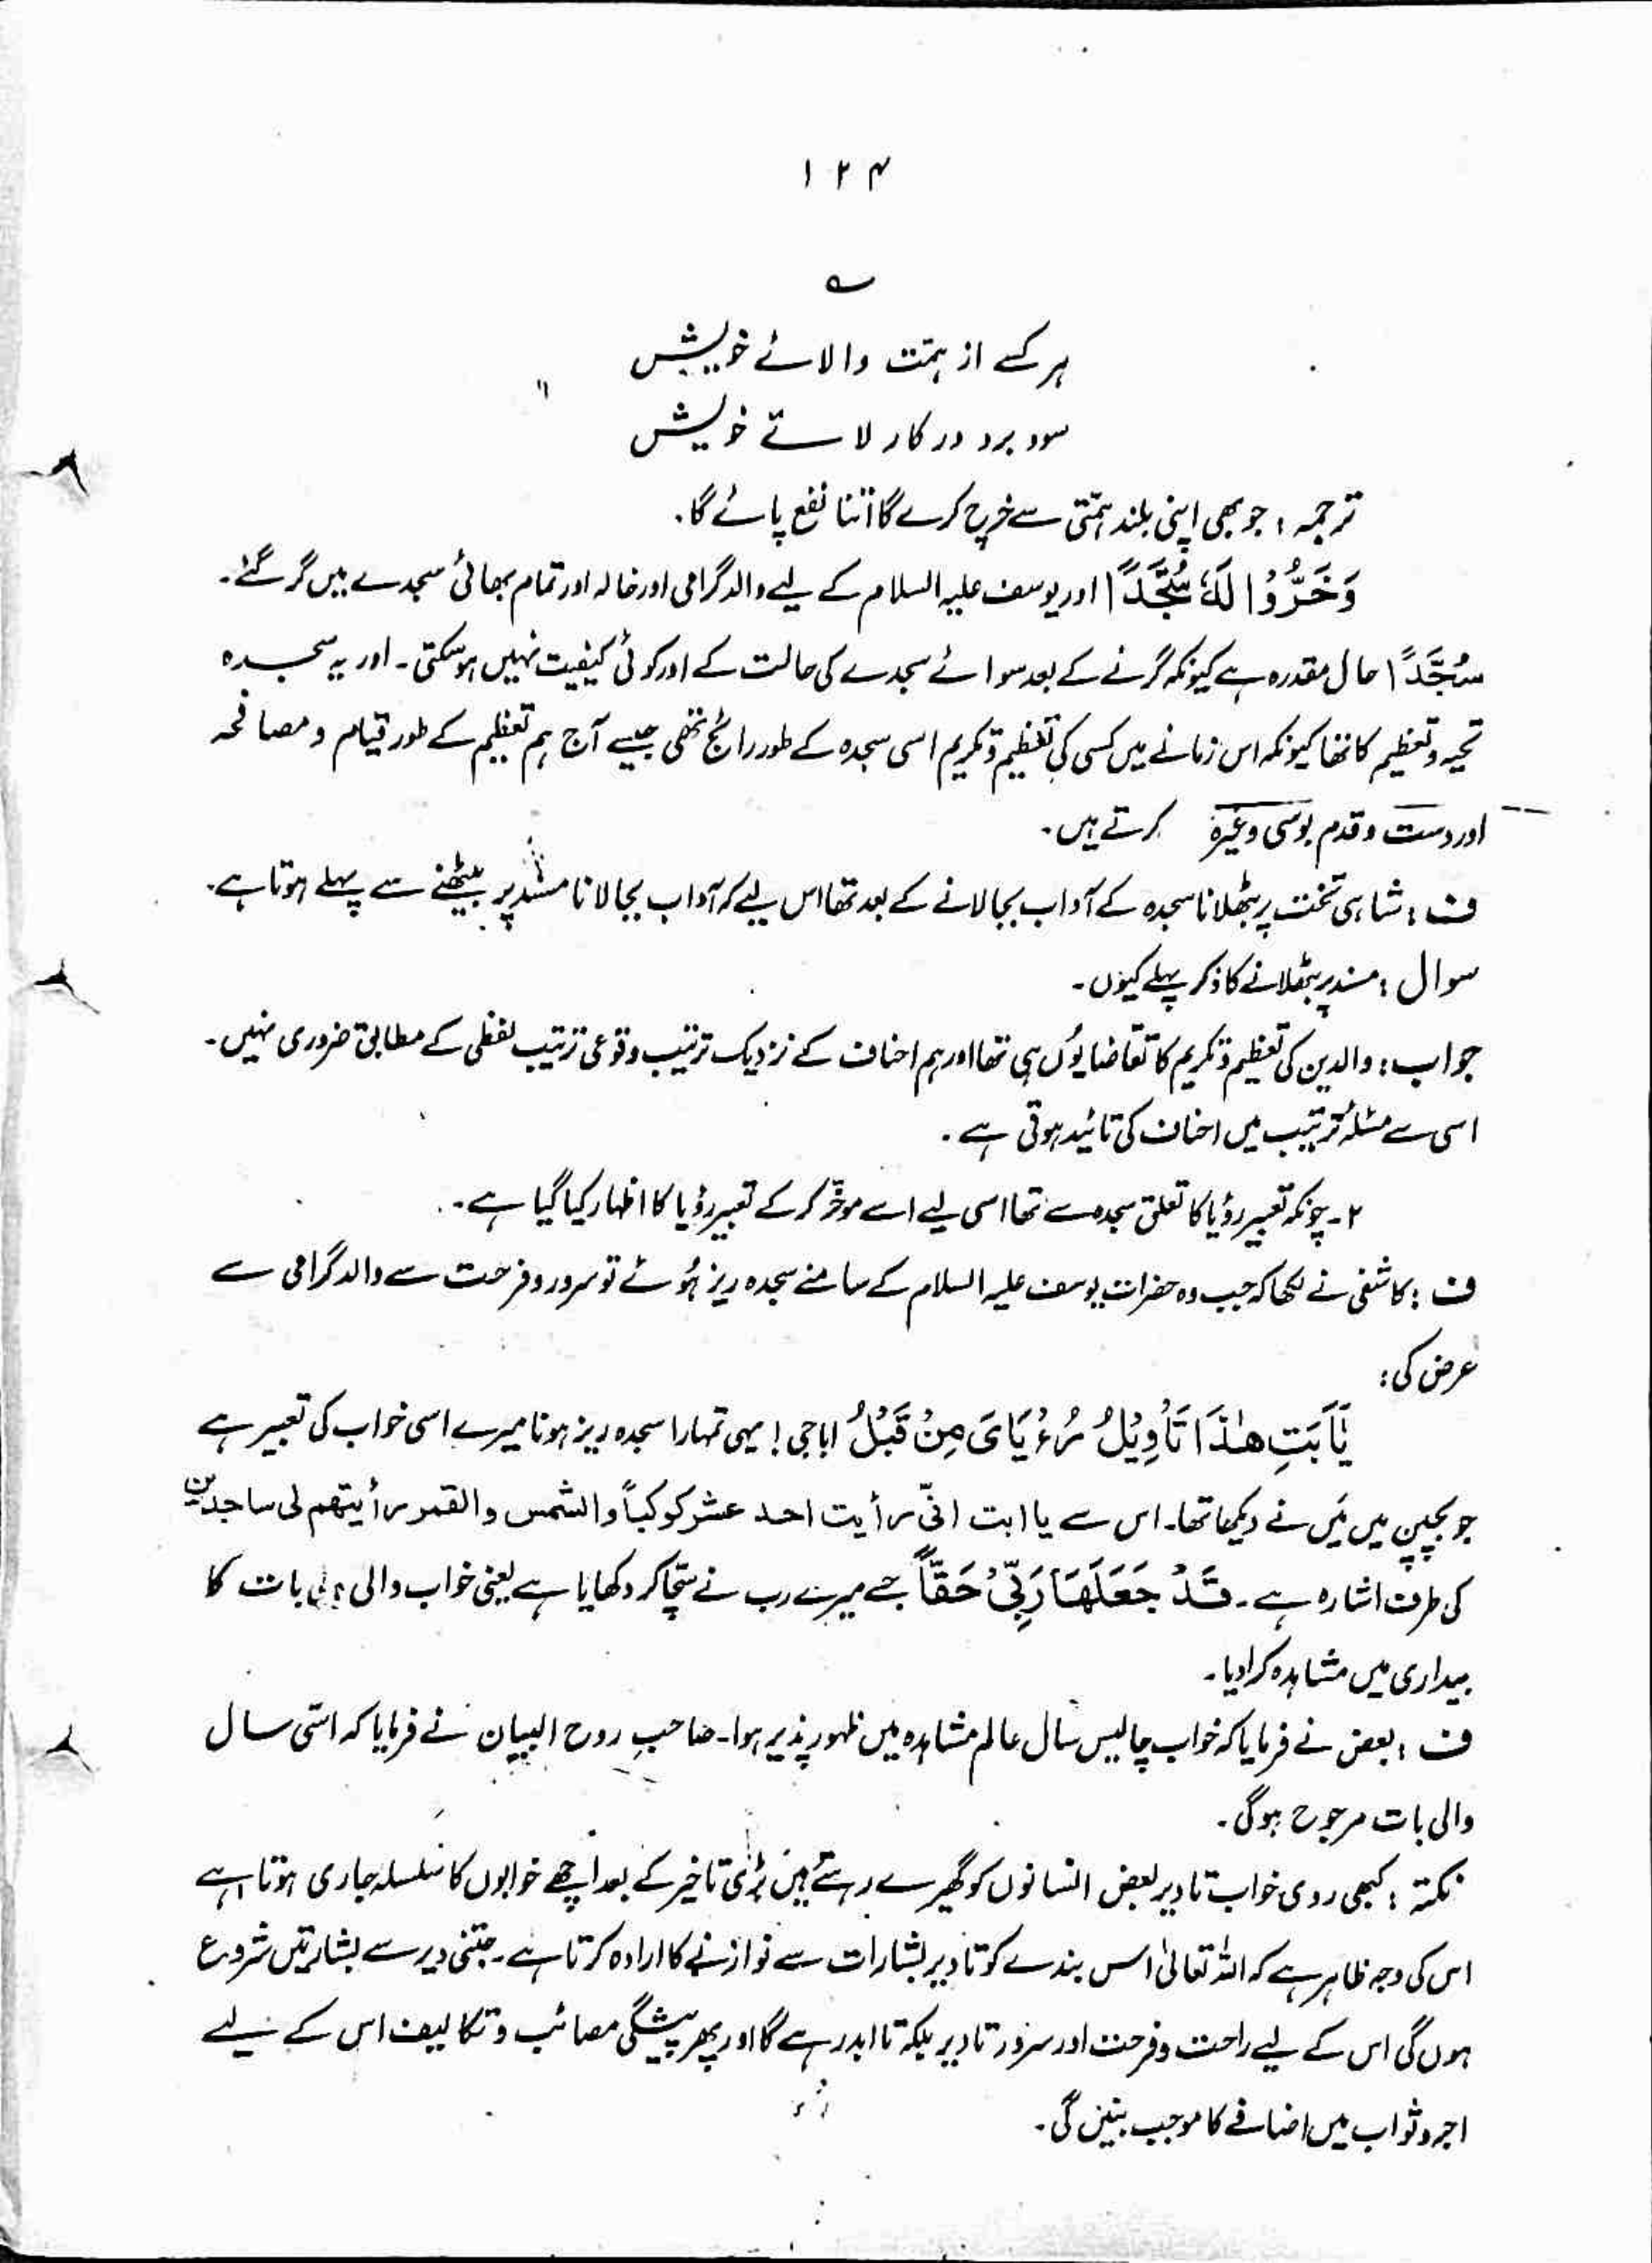 ۱۲۴
؎
ہر کسے از ہمّت والائے خویش
سود برد در کار لائے خویش
ترجمہ : جو بھی اپنی بلند ہمّتی سے خرچ کرے گا اتنا نفع پائے گا۔
وَخَرُّوْا لَهٗ سُجَّدًا اور یوسف علیہ السلام کے لیے والد گرامی اور خالہ اور تمام بھائی سجدے میں گر گئے۔
سُجَّدًا حال مقدرہ ہے کیونکہ گرنے کے بعد سوائے سجدے کی حالت کے اور کوئی کیفیت نہیں ہو سکتی۔ اور یہ سجدہ
تحیہ و تعظیم کا تھا کیونکہ اس زمانے میں کسی کی تعظیم و تکریم اسی سجدہ کے طور رائج تھی جیسے آج ہم تعظیم کے طور قیام و مصافحہ
اور دست و قدم بوسی وغیرہ کرتے ہیں۔
ف : شاہی تخت پر بٹھلانا سجدہ کے آداب بجا لانے کے بعد تھا اس لیے کہ آداب بجا لانا مسند پر بیٹھنے سے پہلے ہوتا ہے۔
سوال : مسند پر بٹھلانے کا ذکر پہلے کیوں۔
جواب : والدین کی تعظیم و تکریم کا تقاضا یوُں ہی تھا اور ہم احناف کے نزدیک ترتیب وقوعی ترتیب لفظی کے مطابق ضروری نہیں۔
اسی سے مسئلہ ترتیب میں احناف کی تائید ہوتی ہے۔
۲۔ چونکہ تعبیر رؤیا کا تعلق سجدہ سے تھا اسی لیے اسے مؤخّر کر کے تعبیر رؤیا کا اظہار کیا گیا ہے۔
ف : کاشفی نے لکھا کہ جب وہ حضرات یوسف علیہ السلام کے سامنے سجدہ ریز ہُوئے تو سرور و فرحت سے والد گرامی سے
عرض کی :
يٰٓاَبَتِ هٰذَا تَاْوِيْلُ رُءْيَايَ مِنْ قَبْلُ ابا جی! یہی تمہارا سجدہ ریز ہونا میرے اسی خواب کی تعبیر ہے
جو بچپن میں مَیں نے دیکھا تھا۔ اس سے یا ابت انّی رأیت احد عشر کوکباً والشمس والقمر رأیتهم لی ساجدین
کی طرف اشارہ ہے۔ قَدْ جَعَلَهَا رَبِّيْ حَقًّا جسے میرے رب نے سچّا کر دکھایا ہے یعنی خواب والی بات کا
بیداری میں مشاہدہ کرا دیا۔
ف : بعض نے فرمایا کہ خواب چالیس سال عالم مشاہدہ میں ظہور پذیر ہوا۔ صاحبِ روح البیان نے فرمایا کہ اسّی سال
والی بات مرجوح ہوگی۔
نکتہ : کبھی ردی خواب تا دیر بعض انسانوں کو گھیرے رہتے ہیں بڑی تاخیر کے بعد اچھے خوابوں کا سلسلہ جاری ہوتا ہے
اس کی وجہ ظاہر ہے کہ اللہ تعالیٰ اس بندے کو تا دیر بشارات سے نوازنے کا ارادہ کرتا ہے۔ جتنی دیر سے بشارتیں شروع
ہوں گی اس کے لیے راحت و فرحت اور سرور تا دیر بلکہ تا ابد رہے گا اور پھر پیشگی مصائب و تکالیف اس کے لیے
اجر و ثواب میں اضافے کا موجب بنیں گی۔